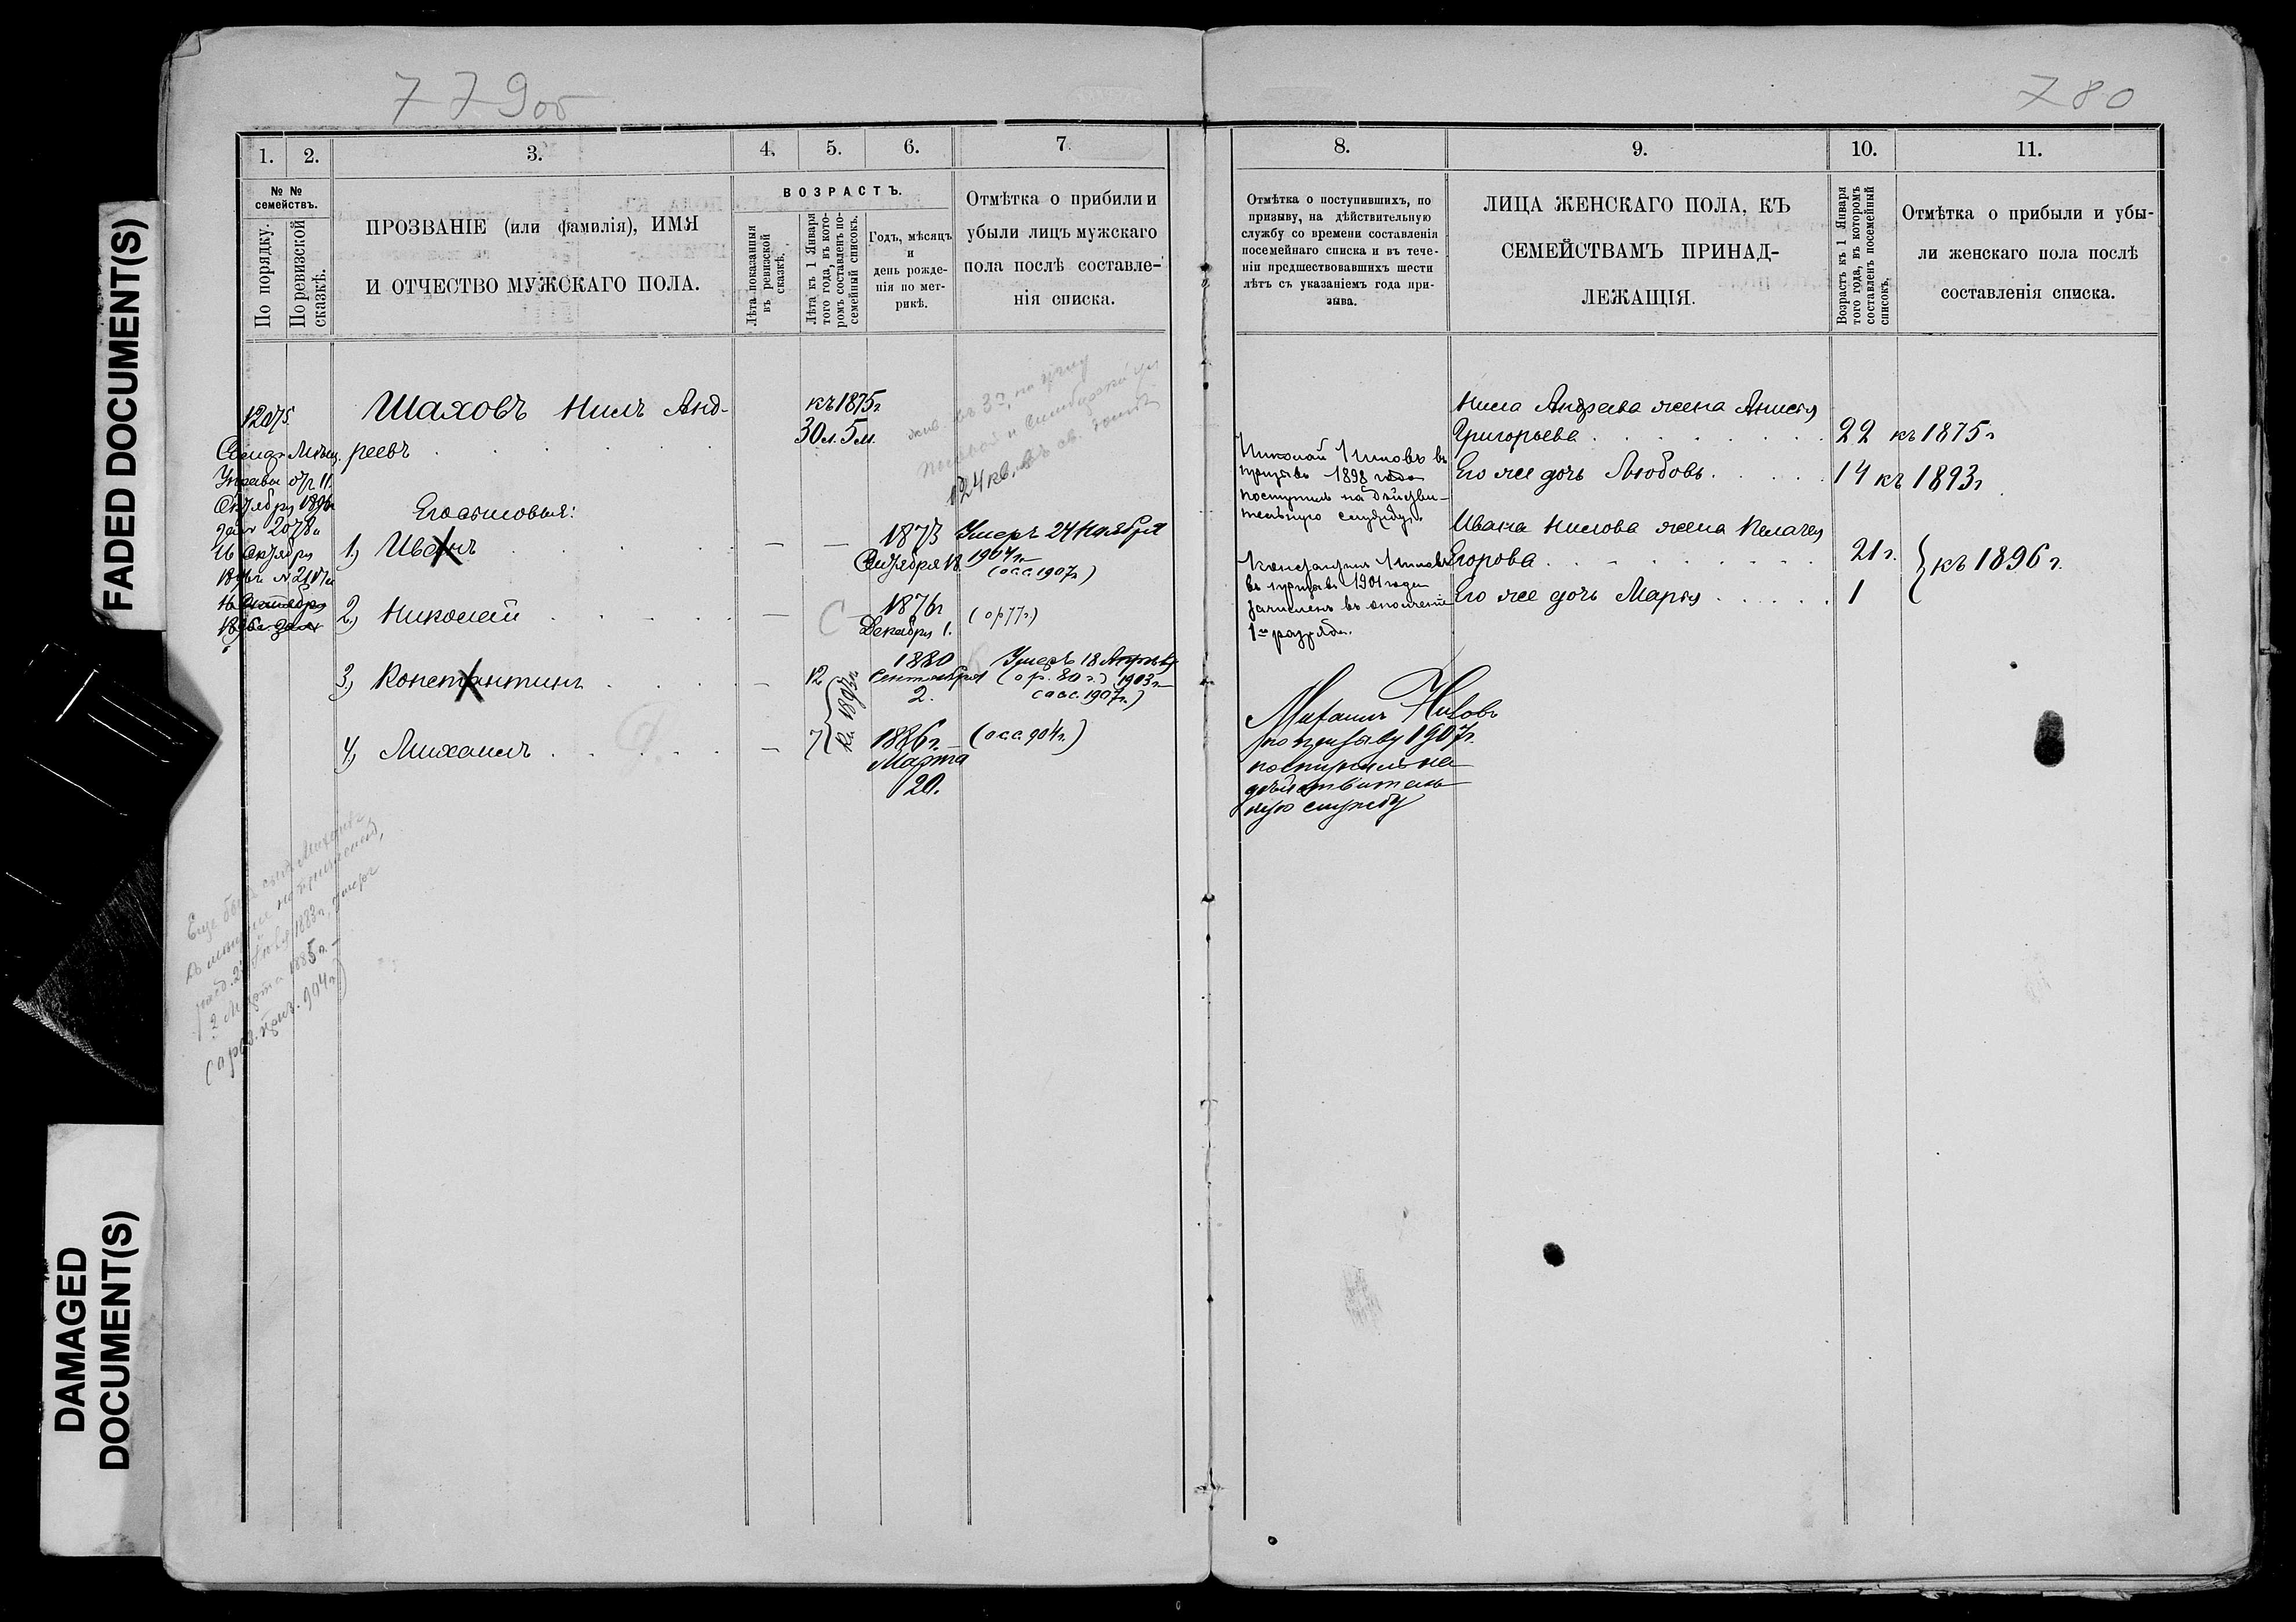 779об
780
1.
2.
3.
4.
5.
6.
7.
№ №
семействъ.
По порядку.
По ревизской
сказкѣ.
ПРОЗВАНІЕ (или фамилія), ИМЯ
И ОТЧЕСТВО МУЖСКАГО ПОЛА.
ВОЗРАСТЪ.
Лѣта показанныя
въ ревизской
сказкѣ.
Лѣта къ 1 Января
того года, въ кото-
ромъ составленъ по-
семейный списокъ.
Годъ, мѣсяцъ
и
день рожде-
нія по мет-
рикѣ.
Отмѣтка о прибыли и
убыли лицъ мужскаго
пола послѣ составле-
нія списка.
12075.
Управы
Октября 1896
2078
Октября
Шаховъ Нилъ Анд-
реевъ
къ 1875 г
30 л. 5 м.
124 кв.
Его сыновья:
1.) Иванъ
1873
Октября 18.
Умеръ 24 Ноября
1904 г.
(о.с.с. 1907 г)
2.) Николай
С
1876 г
Декабря 1.
(о р 77 г.)
3.) Константинъ
12
1880
Сентября
2.
Умеръ 18 Апрѣля
(о р. 80 г.) 1903 г
(о.с.с. 1907 г.)
4.) Михаилъ
7
къ 1893 г
1886 г.
Марта
20.
(о.с.с. 904 г.)
Еще былъ сынъ Михаилъ,
1883 г., умеръ
2 Марта 1885 г.
904 г)
8.
9.
10.
11.
Отмѣтка о поступившихъ, по
призыву, на дѣйствительную
службу со времени составленія
посемейнаго списка и въ тече-
ніи предшествовавшихъ шести
лѣтъ съ указаніемъ года при-
зыва.
ЛИЦА ЖЕНСКАГО ПОЛА, КЪ
СЕМЕЙСТВАМЪ ПРИНАД-
ЛЕЖАЩІЯ.
Возрастъ къ 1 Января
того года, въ которомъ
составленъ посемейный
списокъ.
Отмѣтка о прибыли и убы-
ли женскаго пола послѣ
составленія списка.
Николай Ниловъ въ
призывъ 1898 года
поступилъ на дѣйстви-
тельную службу.
Константинъ Ниловъ
въ призывъ 1901 года
зачисленъ въ ополченіе
1го разряда.
Михаилъ Ниловъ
по призыву 1907 г.
поступилъ на
дѣйствитель
ную службу
Нила Андреева жена Анисья
Григорьева
22
къ 1875 г
Его же дочь Любовь
14
къ 1893 г
Ивана Нилова жена Пелагея
Егорова
21 г.
къ 1896 г.
Его же дочь Марія
1
FADED DOCUMENT(S)
DAMAGED
DOCUMENT(S)